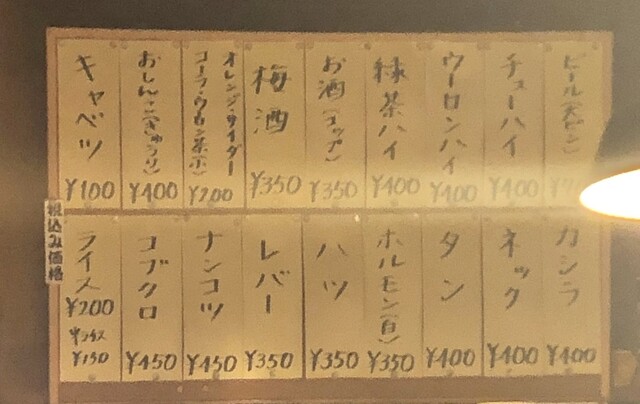 ビール(大ビン)
チューハイ
¥400
ウーロンハイ
¥400
緑茶ハイ
¥400
お酒(コップ)
¥350
梅酒
¥350
オレンジ・サイダー
コーラ・ウーロン茶(小)
¥200
おしんこ(きゅうり)
¥400
キャベツ
¥100
税込み価格
カシラ
¥400
ネック
¥400
タン
¥400
ホルモン(白)
¥350
ハツ
¥350
レバー
¥350
ナンコツ
¥450
コブクロ
¥450
ライス
¥200
半ライス
¥150